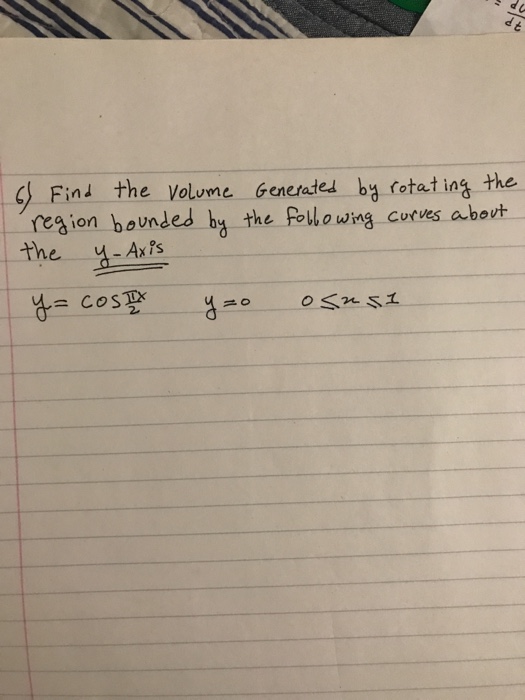 du
dt
6) Find the Volume Generated by rotating the
region bounded by the following curves about
the y-Axis
y = cos πx/2 y=0 0≤x≤1